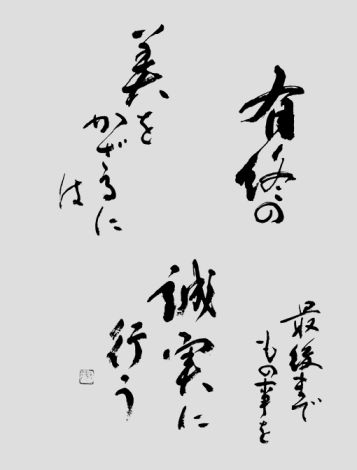 有終の
美を
かざるに
は
最後まで
もの事を
誠実に
行う